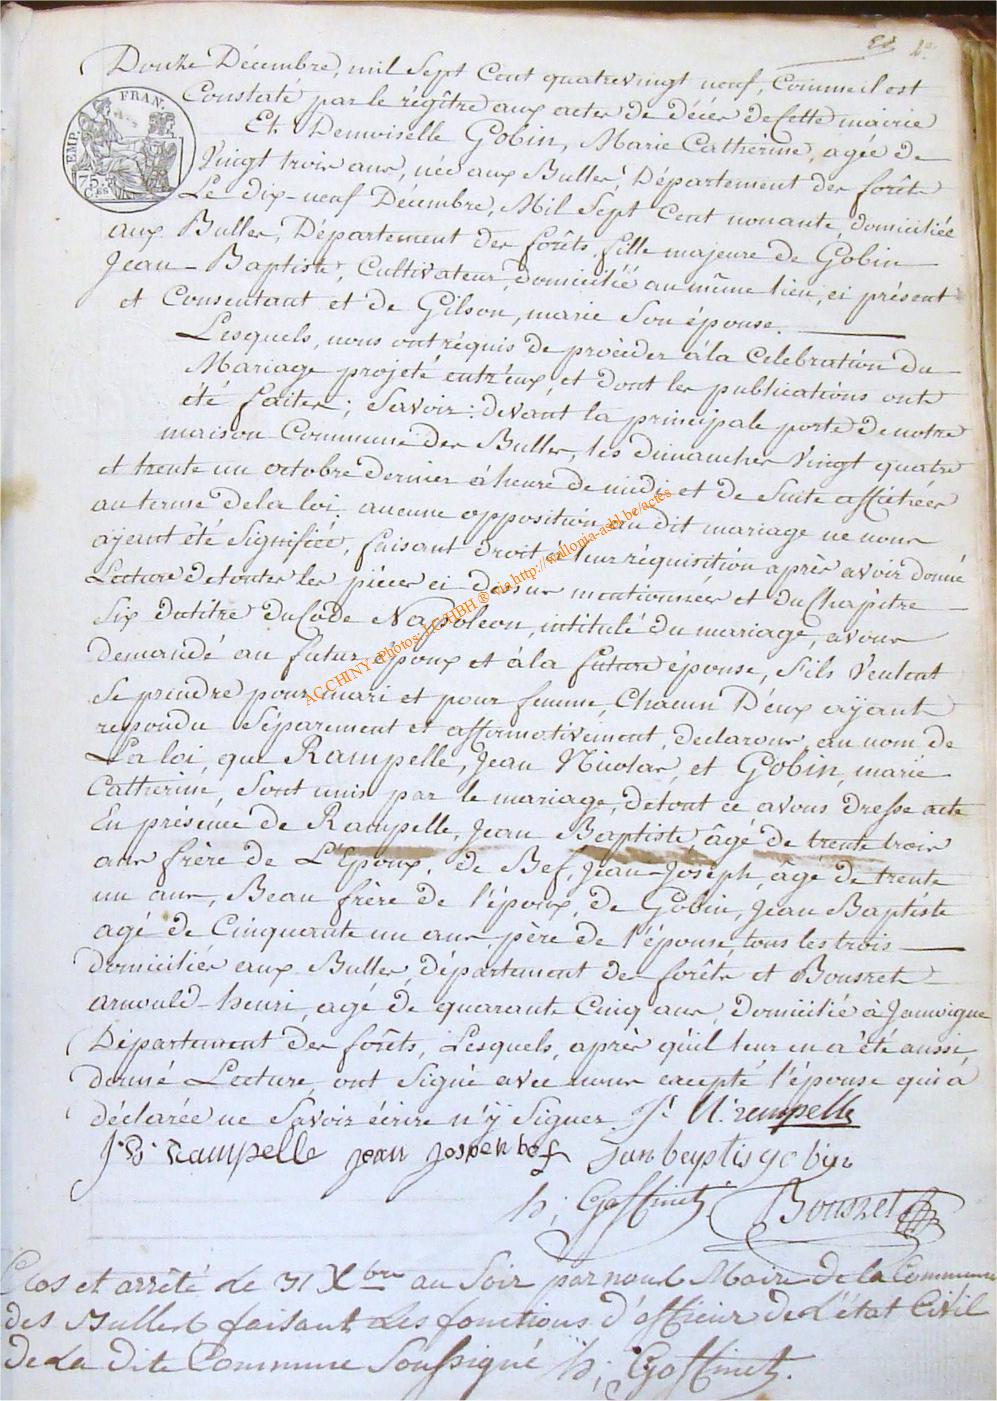 Douze Décembre, mil Sept Cent quatrevingt neuf, Comme il est
Constaté par le régître aux actes de Décés de Cette mairie
EMP. FRAN.
75. Ces
Et Demoiselle Gobin, Marie Catherine, agée de
Vingt trois ans, née aux Bulles, Département des forêts
Le dix-neuf Décembre, Mil Sept Cent nonante, domiciliée
aux Bulles, Département des forêts, fille majeure de Gobin
Jean-Baptiste, Cultivateur, domicilié au même lieu, ci présent
et Consentant et de Gilson, marie Son épouse.
Lesquels, nous ont réquis de procèder à la Celebration du
Mariage projeté entr'eux, et dont les publications ont
été faites; Savoir: devant la principale porte de notre
maison Commune des Bulles, les dimanches Vingt quatre
et trente un octobre dernier à heure de midi, et de Suite affichées
au terme de la loi, aucune opposition au dit mariage ne nous
ayant été Signifiée, faisant droit à leur réquisition après avoir donné
Lecture de toutes les pièces ci dessus mentionnées et du Chapitre
Six du titre du Code Napoléon, intitulé du mariage, avons
demandé au futur époux et à la future épouse, S'ils Veulent
Se prendre pour mari et pour femme, Chacun D'eux ayant
repondu Séparement et affirmativement, declarons au nom de
La loi, que Rampelle, Jean Nicolas, et Gobin, marie
Catherine, Sont unis par le mariage, de tout ce avons dresse acte
En présence de Rampelle, Jean Baptiste, âgé de trente trois
ans frère de L'Epoux, de Bef, Jean-Joseph, âgé de trente
un ans, Beau frère de l'époux, de Gobin, Jean Baptiste
agé de Cinquante un ans, père de l'épouse, tous les trois
domiciliés aux Bulles, département des forêts et Bousret
arnould-henri, agé de quarant Cinq ans, domicilié à Jamoigne
Département des forêts, Lesquels, après qu'il leur en à été aussi
donné Lecture, ont Signé avec nous excepté l'épouse qui à
déclarée ne Savoir écrire n'y Signer. J. N. rempelle
J. B. Rampelle jean joseph bef Jan baptis gobin
h; Goffinet Bousret
Clos et arrêté le 31 Xbre au Soir par nous Maire de la Commune
des Bulles, faisant les fonctions d'officier de L'état Civil
de La Dite Commune Soussigné h; Goffinet.
AC CHINY - Photos: LGHBH ® via http://wallonia-asbl.be/actes